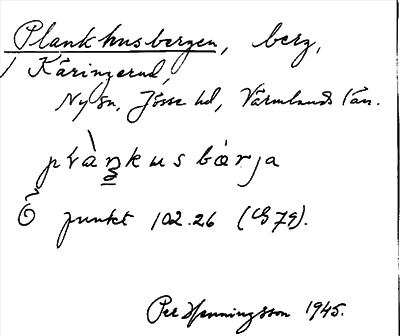 Plankhusbergen, berg,
Käringerud,
Ny sn, Jösse hd, Värmlands län.
plàŋkusbærja
Ö punkt 102.26 (G 79).
Per Henningsson 1945.